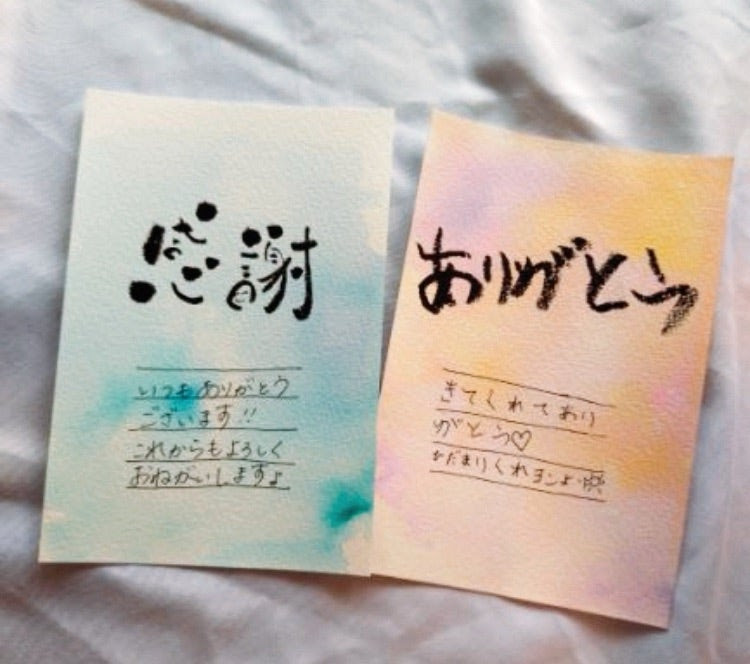 感謝
いつもありがとう
ございます!!
これからもよろしく
おねがいします
ありがとう
きてくれてあり
がとう♡
ひだまりくれヨンより